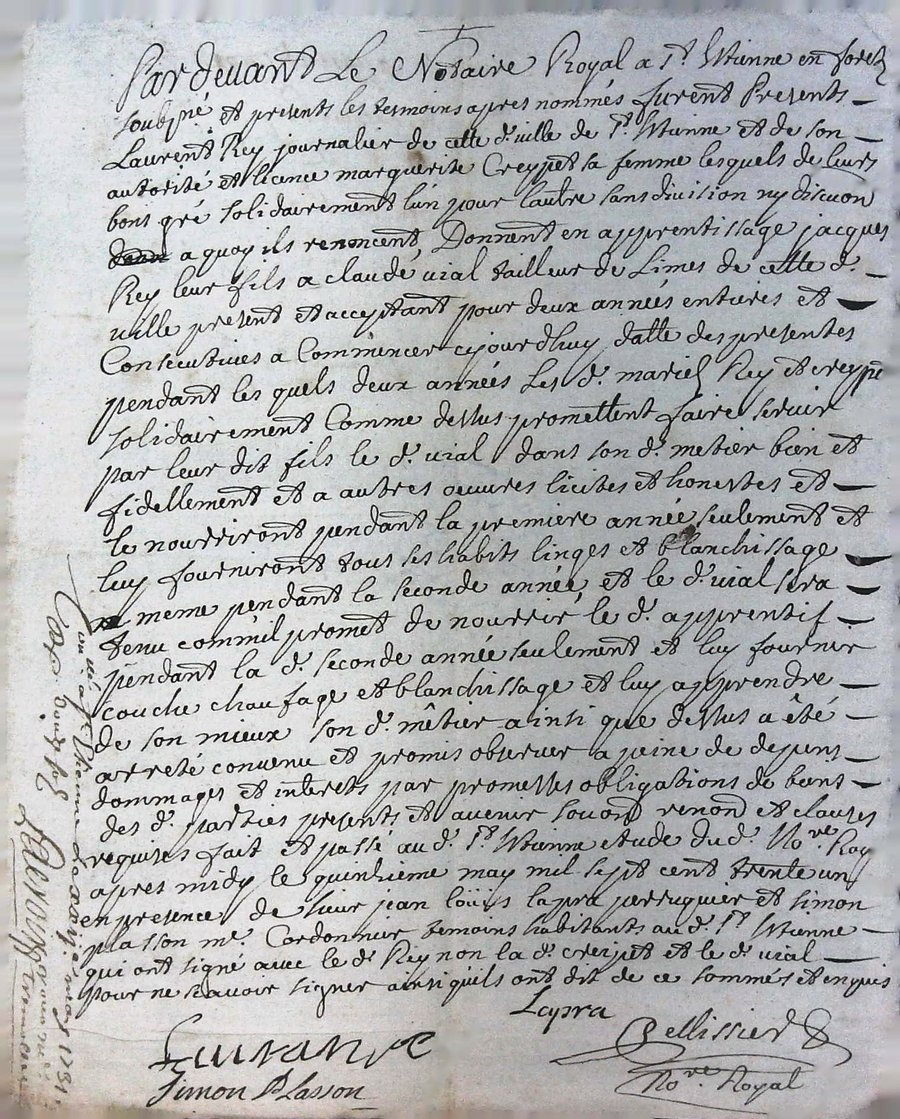 Par devant Le Notaire Royal a St. Etienne en forez
soubsné et presents les tesmoins apres nommés furent Presents
Laurent Rey journalier de cette d. ville de St. Etienne et de son
autorité et licence marguerite Creypet sa femme lesquels de leurs
bons gré solidairement l'un pour lautre sans division ny discuon
a quoy ils renoncent, Donnent en apprentissage jacques
Rey leur fils a claude vial tailleur de Limes de cette d.
ville present et acceptant pour deux années entieres et
Consecutives a Commencer cejourdhuy datte des presentes
pendant les quels deux années Les d. mariés Rey et creypet
solidairement Comme dessus promettent faire servir
par leur dit fils le d. vial dans son d. metier bien et
fidellement et a autres oeuvres licites et honestes et
le nourriront pendant la premiere année seulement et
luy fourniront tous ses habits linges et blanchissage
meme pendant la seconde année, et le d. vial sera
tenu comm'il promet de nourrir le d. apprentif
pendant la d. seconde année seulement et luy fournir
couche chaufage et blanchissage et luy apprendre
de son mieux son d. mêtier ainsi que dessus a été
arreté convenu et promis observer a peine de depens
dommages et interets par promesses obligations de biens
des d. parties presents et avenir soubon renon et clauses
requises fait et passé au d. St. Etienne etude dud. Nore. Roy
apres midy le quinzieme may mil sept cent trente un
en presence de sieur jean loüis lapra perruquier et simon
plasson me. Cordonnier temoins habitants au d. St. Etienne
qui ont signé avec le d. Rey non la d. creypet et le d. vial
pour ne sçavoir signer ainsi qu'ils ont dit de ce sommés et enquis
Lapra
Pellissier
Simon Plasson
Nore. Royal
a St. Etienne may 1731